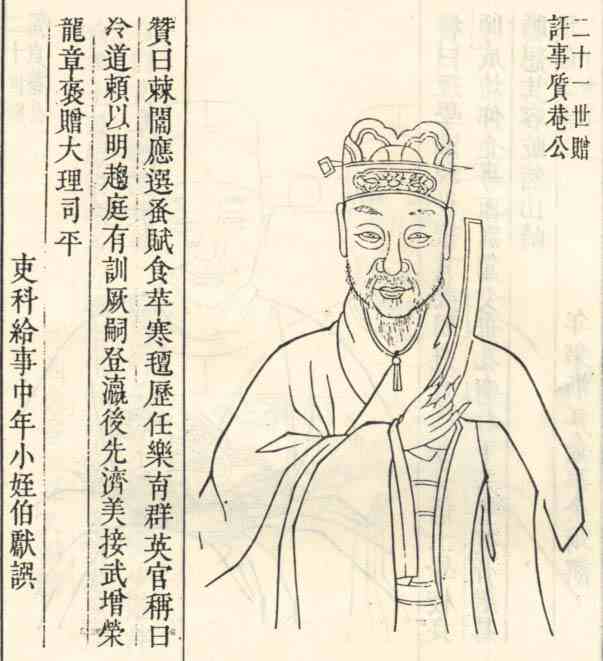 二十一世贈
評事質巷公
贊曰棘闈應選蚤賦食苹寒氊歷任樂育群英官稱曰
冷道賴以明趨庭有訓厥嗣登瀛後先濟美接武增榮
龍章褒贈大理司平
吏科給事中年小姪伯猷譔